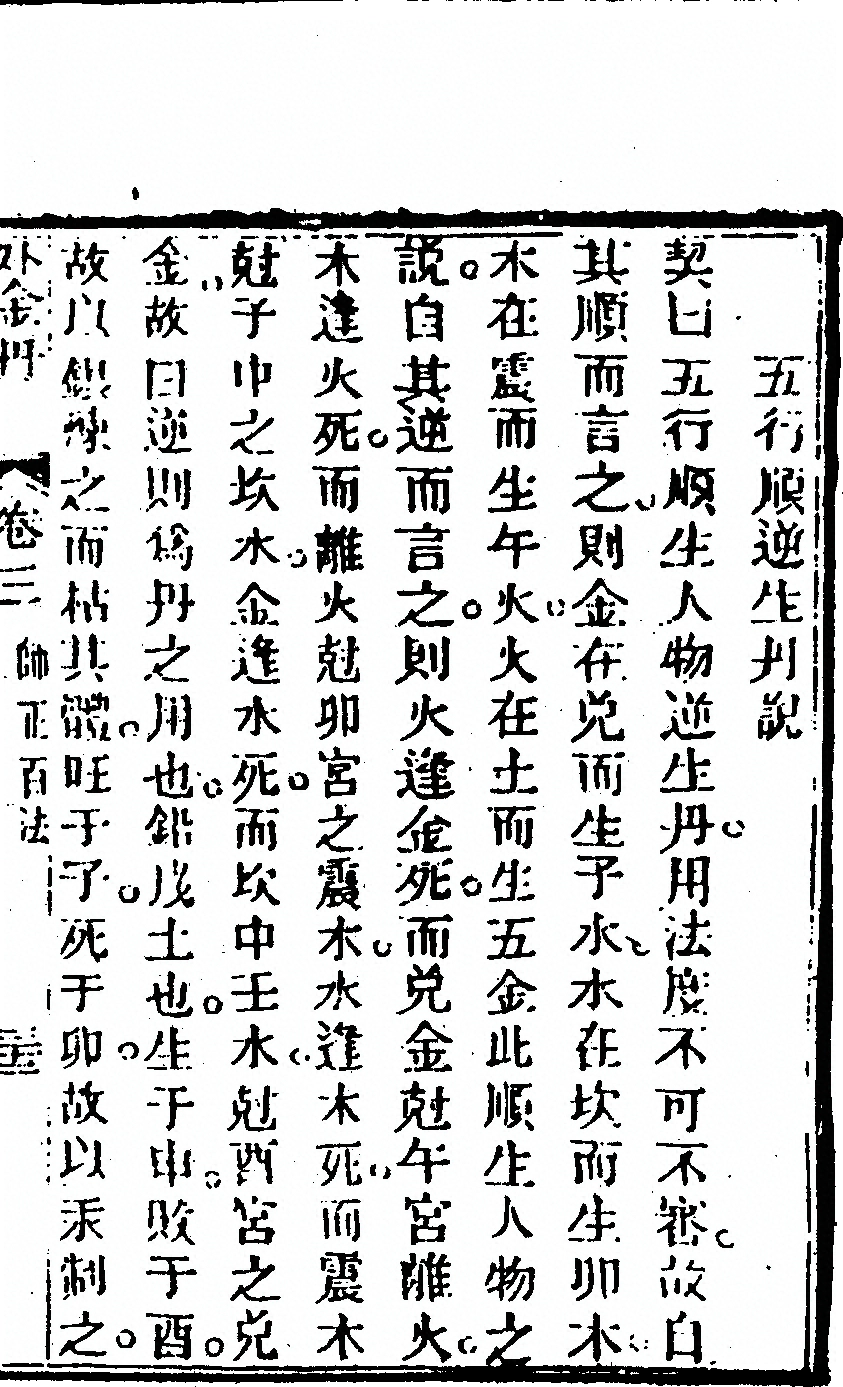 五行順逆生丹説
契曰五行順生人物逆生丹。用法度不可不審。故自
其順而言之。則金在兌而生子水。水在坎而生卯木。
木在震而生午火。火在土而生五金此順生人物之
説。自其逆而言之。則火逢金死。而兌金尅午宮離火。
木逢火死。而離火尅卯宮之震木。水逢木死。而震木
尅子中之坎水。金逢水死。而坎中壬水。尅酉宮之兌
金。故曰逆則為丹之用也。鉛戊土也。生于申。敗于酉。
故以銀煉之而枯其體。旺于子。死于卯。故以汞制之。
外金丹
卷三
師正百法